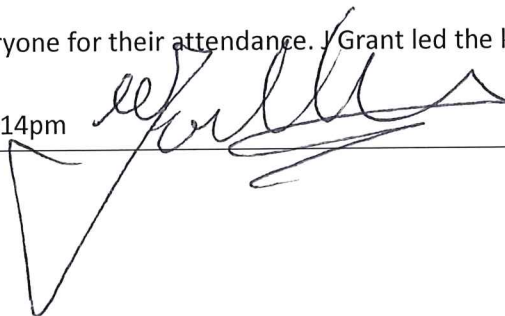 ryone for their attendance. J Grant led the k
14pm